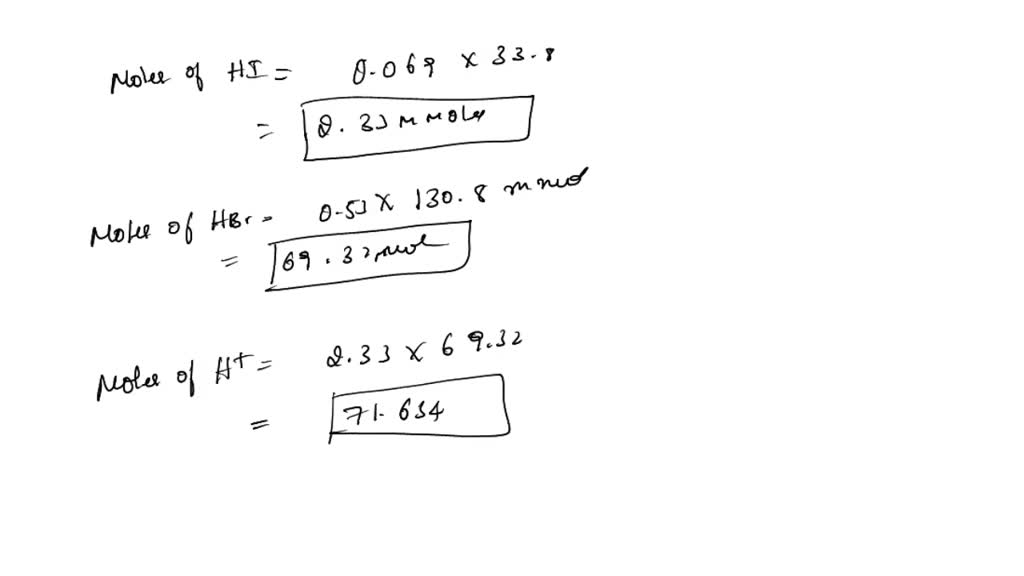 Moles of HI = 0.069 x 33.8
= 2.33 mmoles
Moles of HBr = 0.53 x 130.8 mmol
= 69.32 mmol
Moles of H+ = 2.33 x 69.32
= 71.654